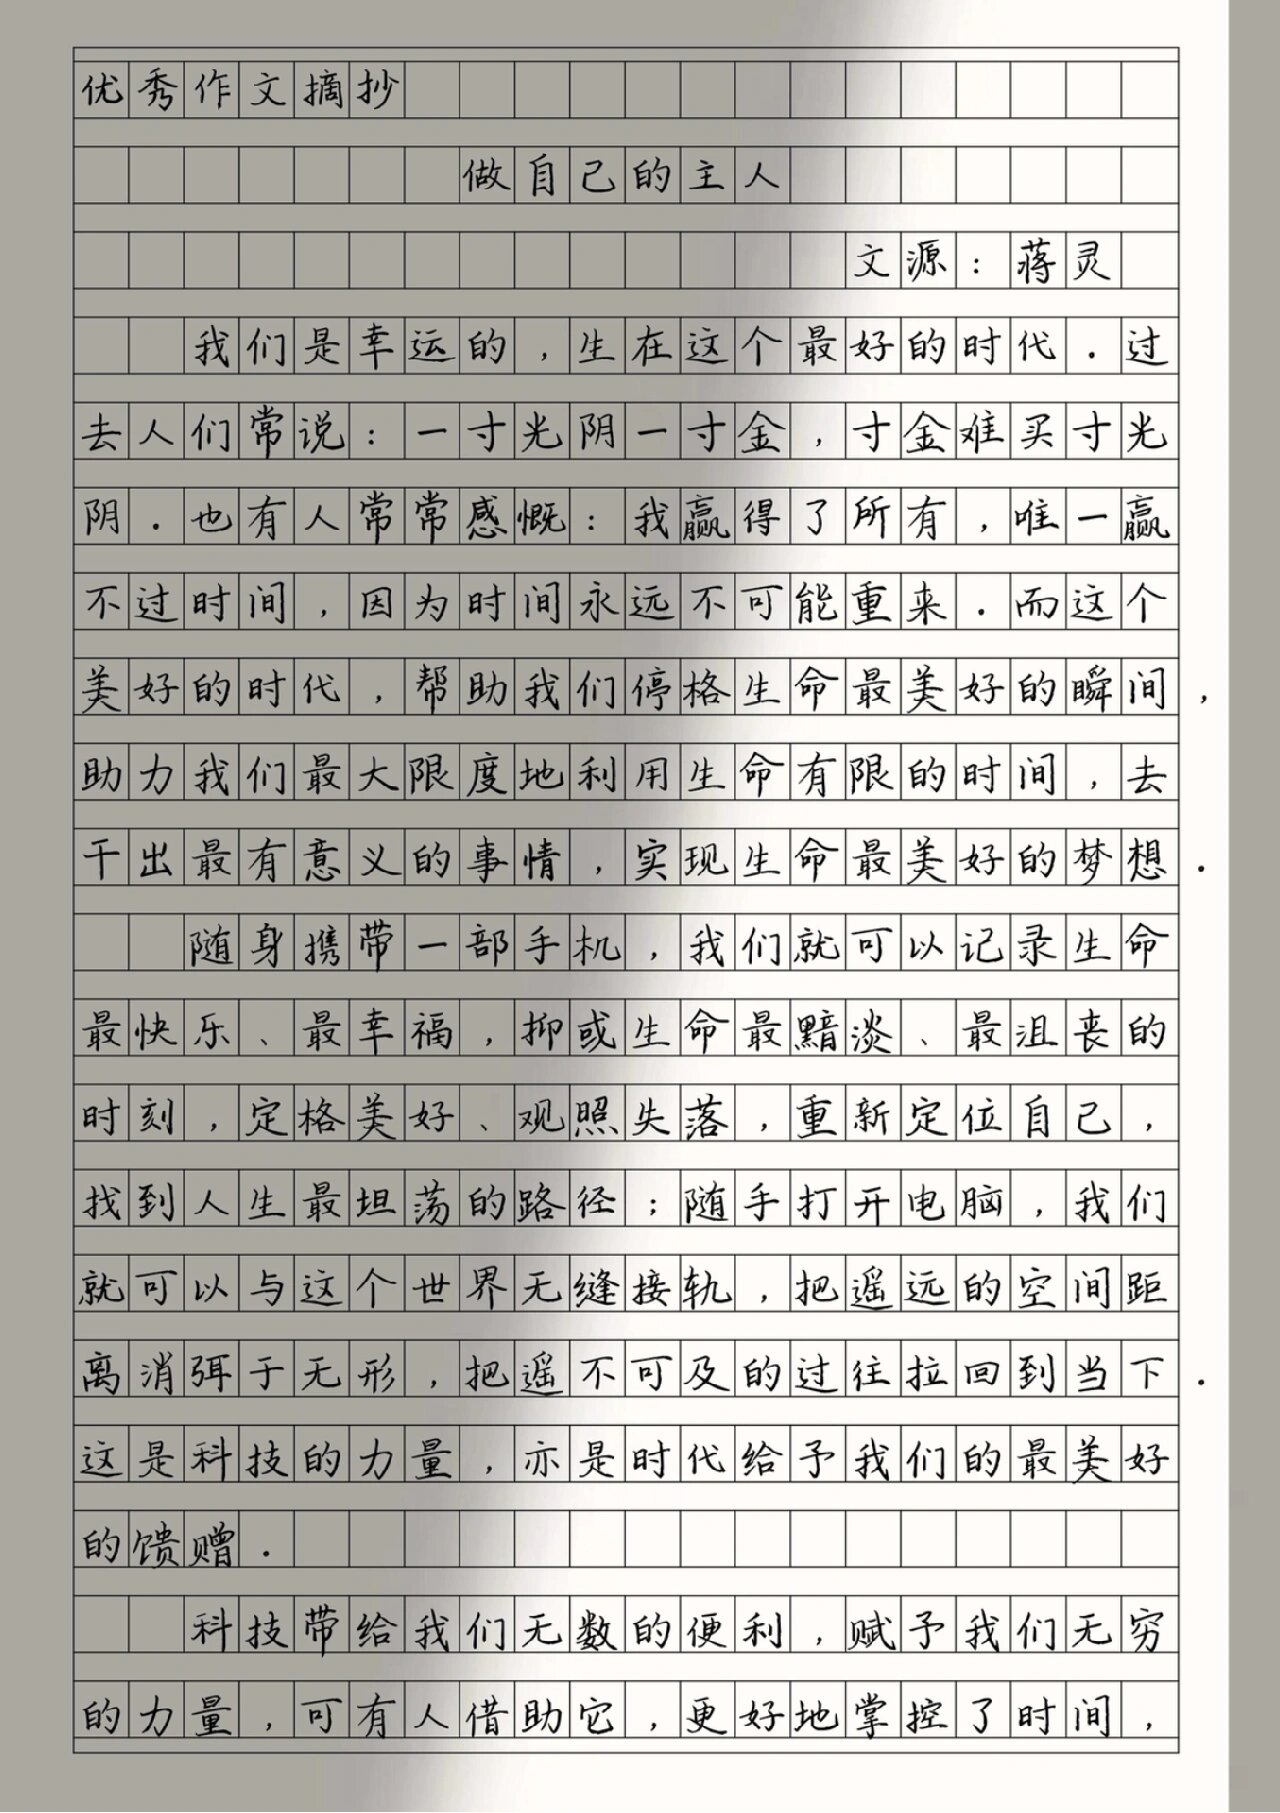 优秀作文摘抄
做自己的主人
文源：蒋灵
我们是幸运的，生在这个最好的时代．过
去人们常说：一寸光阴一寸金，寸金难买寸光
阴．也有人常常感慨：我赢得了所有，唯一赢
不过时间，因为时间永远不可能重来．而这个
美好的时代，帮助我们停格生命最美好的瞬间，
助力我们最大限度地利用生命有限的时间，去
干出最有意义的事情，实现生命最美好的梦想．
随身携带一部手机，我们就可以记录生命
最快乐、最幸福，抑或生命最黯淡、最沮丧的
时刻，定格美好、观照失落，重新定位自己，
找到人生最坦荡的路径；随手打开电脑，我们
就可以与这个世界无缝接轨，把遥远的空间距
离消弭于无形，把遥不可及的过往拉回到当下．
这是科技的力量，亦是时代给予我们的最美好
的馈赠．
科技带给我们无数的便利，赋予我们无穷
的力量，可有人借助它，更好地掌控了时间，